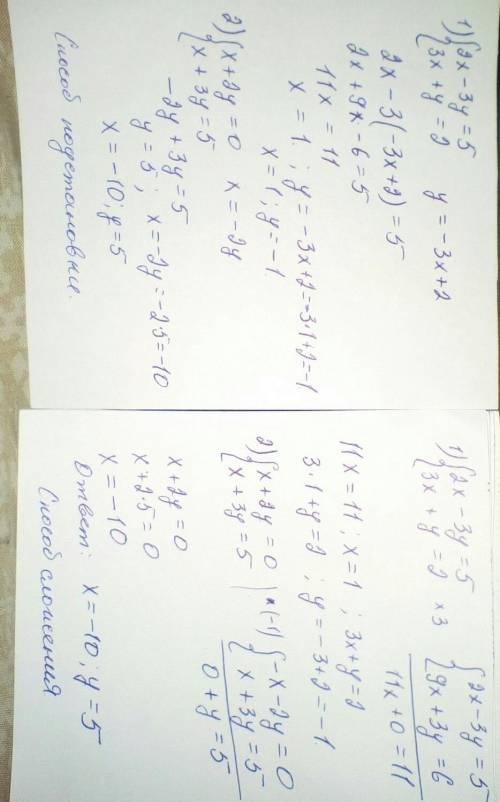 1) { 2x - 3y = 5
{ 3x + y = 2 y = -3x + 2
2x - 3(-3x+2) = 5
2x + 9x - 6 = 5
11x = 11
x = 1. ; y = -3x+2 = -3·1+2 = -1
x = 1; y = -1
2) { x + 2y = 0 x = -2y
{ x + 3y = 5
-2y + 3y = 5
y = 5; x = -2y = -2·5 = -10
x = -10; y = 5
Способ подстановки.
1) { 2x - 3y = 5 { 2x - 3y = 5
{ 3x + y = 2 ×3 { 9x + 3y = 6
11x + 0 = 11
11x = 11; x = 1; 3x + y = 2
3·1 + y = 2; y = -3+2 = -1.
2) { x + 2y = 0 | ×(-1) { -x - 2y = 0
{ x + 3y = 5 { x + 3y = 5
0 + y = 5
x + 2y = 0
x + 2·5 = 0
x = -10
Ответ: x = -10; y = 5
Способ сложения